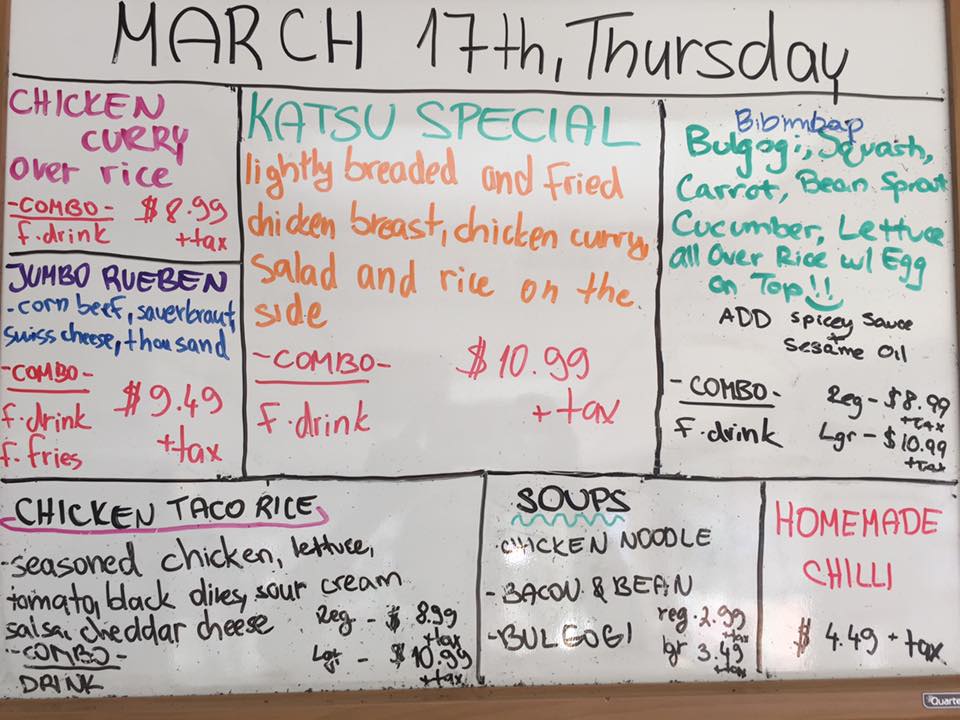 MARCH 17th, Thursday
CHICKEN
CURRY
over rice
-COMBO- $8.99
f.drink +tax
JUMBO RUEBEN
-corn beef, sauerbraut,
swiss cheese, thousand
-COMBO-
f.drink $9.49
f.fries +tax
KATSU SPECIAL
lightly breaded and fried
chicken breast, chicken curry,
salad and rice on the
side
-COMBO- $10.99
f.drink +tax
Bibimbap
Bulgogi, Squash,
Carrot, Bean Sprout
Cucumber, Lettuce
all Over Rice w/ Egg
on Top!!
ADD spicey sauce
+
sesame oil
-COMBO- Reg - $8.99
+tax
f.drink Lgr - $10.99
+tax
CHICKEN TACO RICE
-seasoned chicken, lettuce,
tomato, black olives, sour cream
salsa, cheddar cheese
Reg - $8.99
+tax
-COMBO- Lgr - $10.99
+tax
DRINK
SOUPS
-CHICKEN NOODLE
-BACON & BEAN
reg. 2.99
+tax
-BULGOGI
lgr 3.49
+tax
HOMEMADE
CHILLI
$4.49 + tax
Quarte